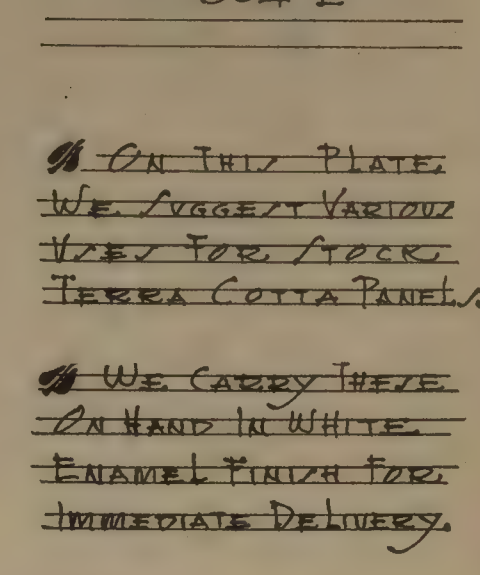 On This Plate
We Suggest Various
Vses For Stock
Terra Cotta Panels.
We Carry These
On Hand In White
Enamel Finish For
Immediate Delivery.